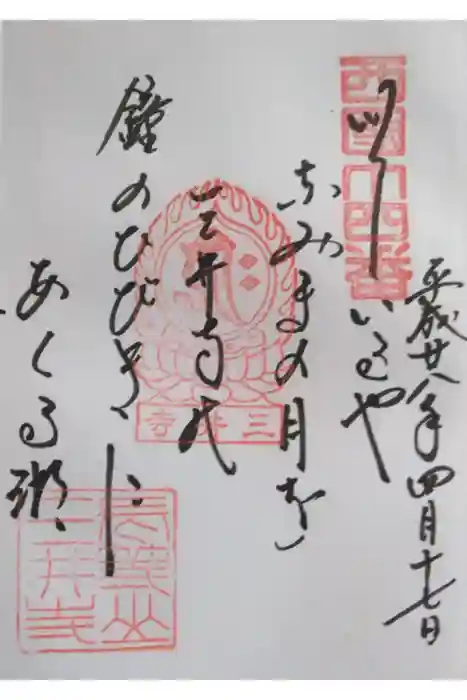 平成廿八年四月十七日
西國十四番
いでいるや
なみまの月を
三井寺の
鐘のひびきに
あくる湖
三井寺
長等山
三井寺